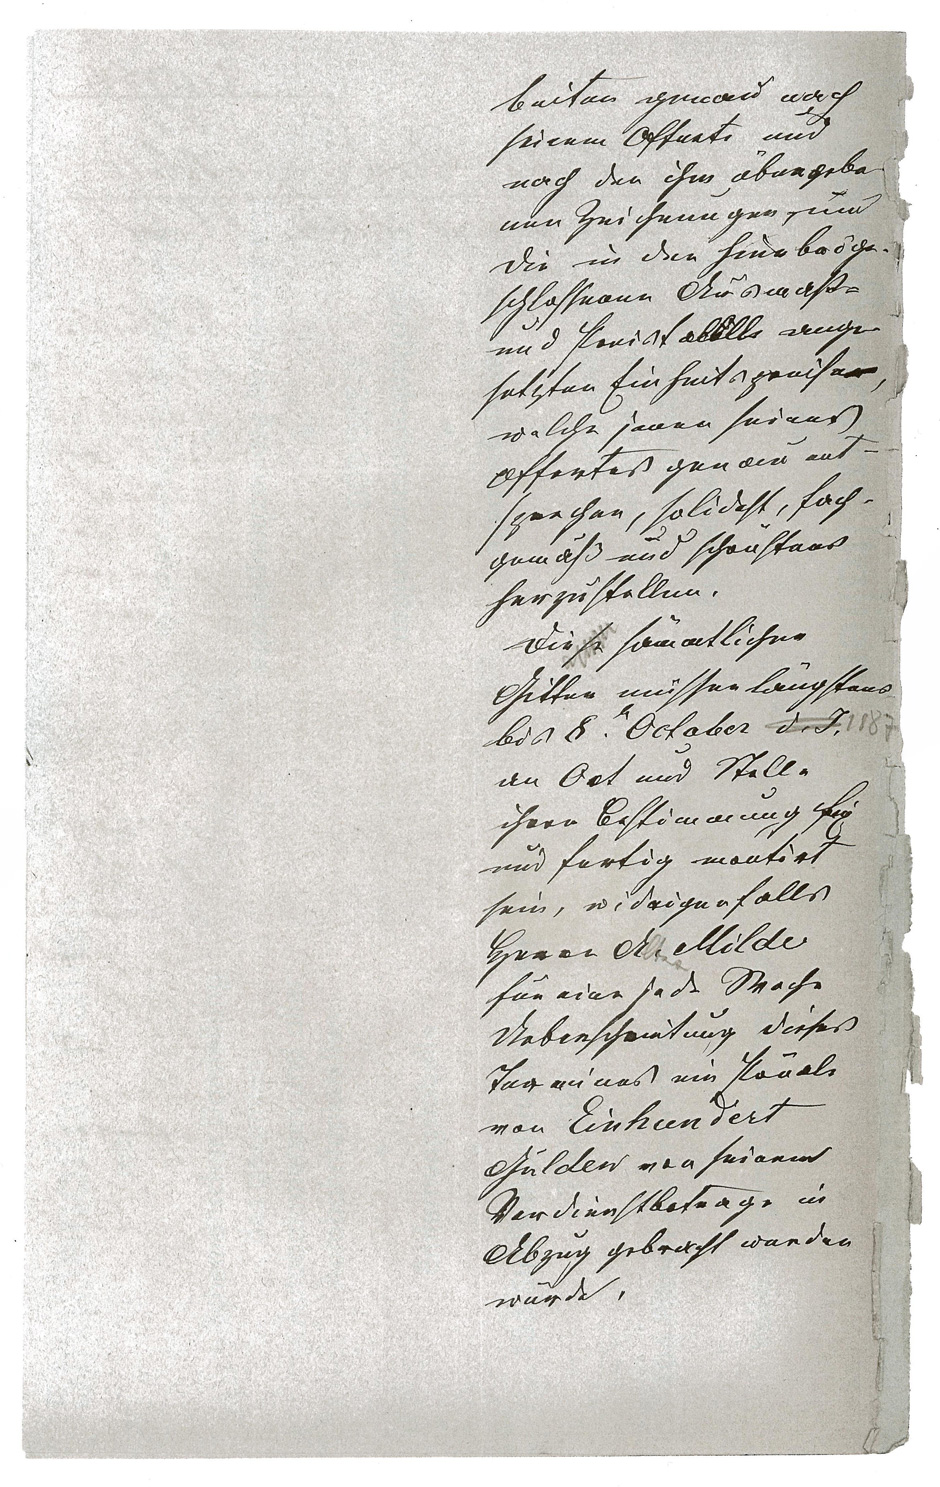 beiten genau nach
seinem Offerte und
nach den ihm übergebe-
nen Zeichnungen, um
die in der hier beige-
schlossenen Ausmaß-
und Preistabelle ange-
setzten Einheitspreise,
welche jenen seines
Offertes genau ent-
sprechen, solidest, fach-
gemäß und schönstens
herzustellen.
Diese sämmtlichen
Gitter müssen längstens
bis 8. October d. J. 1887
an Ort und Stelle
ihrer Bestimmung fix
und fertig montirt
sein, widrigenfalls
Herrn A. Milde
für eine jede Woche
Ueberschreitung dieses
Termines ein Pönale
von Einhundert
Gulden von seinem
Verdienstbetrage in
Abzug gebracht werden
würde.